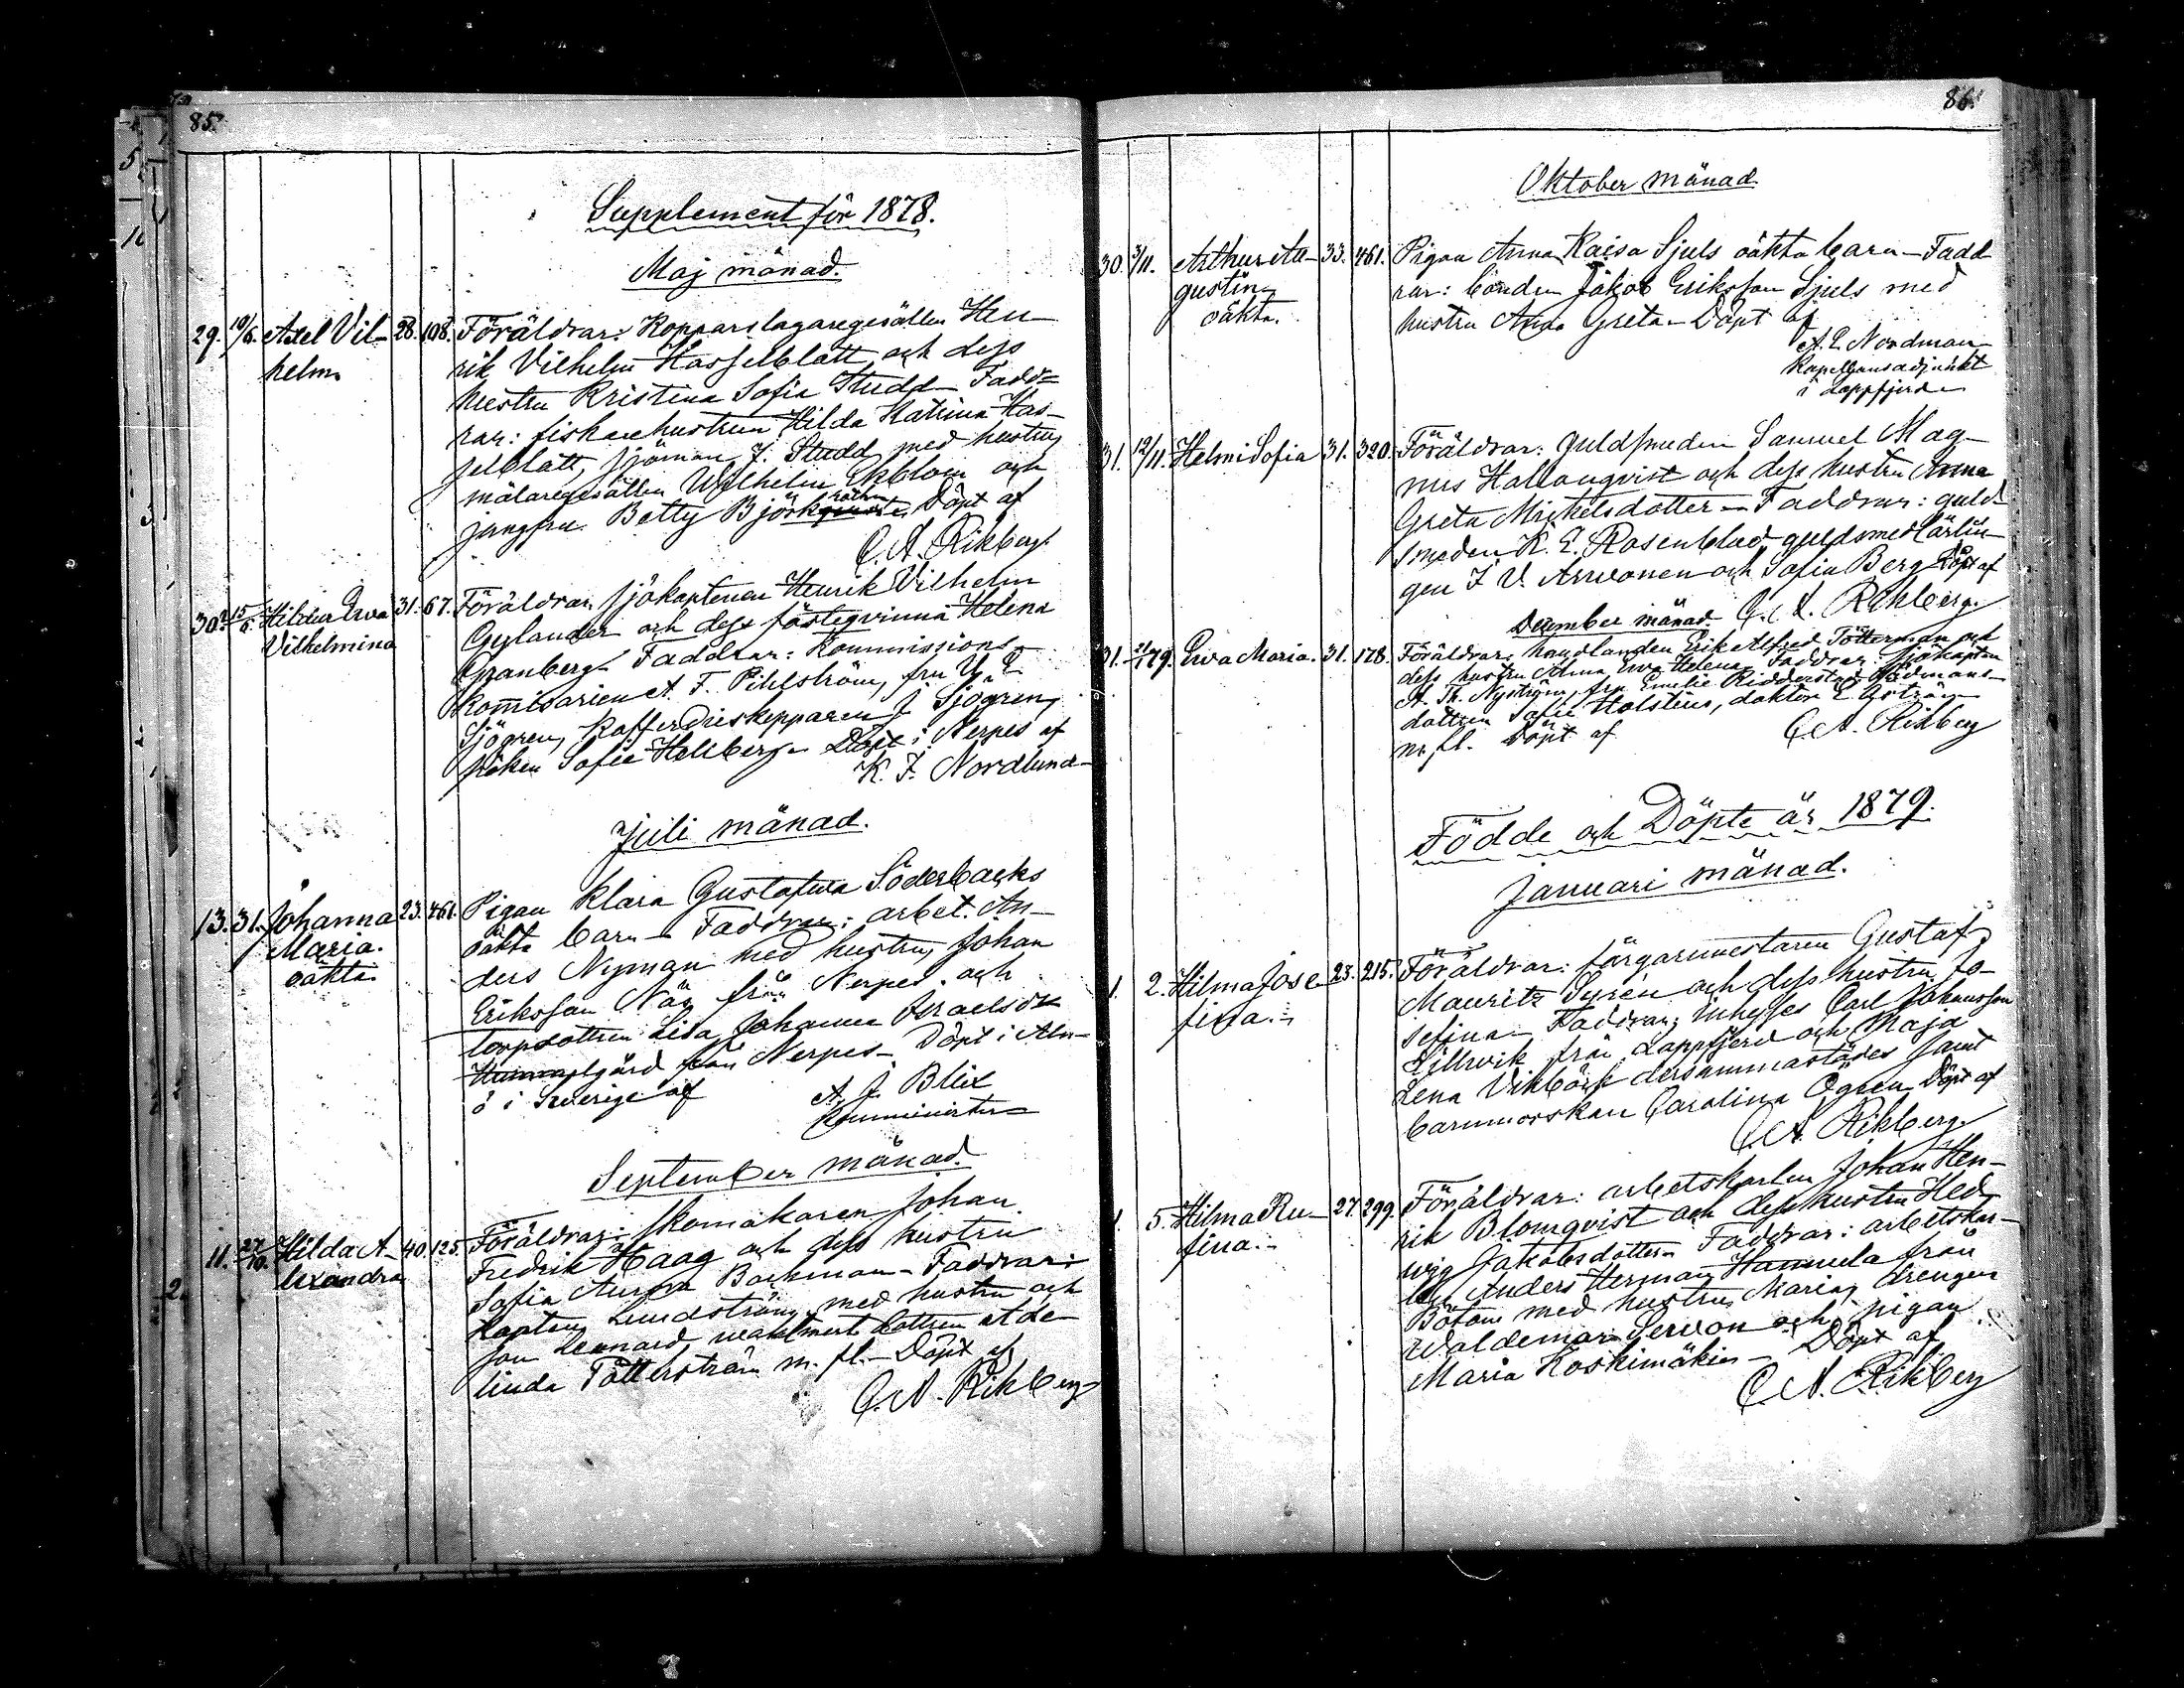 85.
Supplement för 1878.
Maj månad.
29. 10/6. Axel Vil- 28. 108. Föräldrar: Kopparslagaregesällen Hen-
helm rik Vilhelm Hasselblatt och dess
hustru Kristina Sofia Studd - Fadd-
rar: fiskarehustrun Hilda Katrina Has-
selblatt, sjöman J. Studd med hustru,
målaregesällen Wilhelm Ekblom och
jungfru Betty Björk Döpt af
C. A. Rikberg.
30. 15/6. Hildur Ewa 31. 67. Föräldrar: sjökaptenen Henrik Vilhelm
Vilhelmina Gylander och dess fästeqvinna Helena
Granberg. Faddrar: Kommissions-
kommisarien A. F. Pihlström, fru Y. E.
Sjögren, Kofferdieskepparen J. Sjögren,
fröken Sofie Hellberg - Döpt i Nerpes af
K. F. Nordlund
Juli månad.
13. 31. Johanna 23. 461. Pigan Klara Gustafwa Söderbacks
Maria. oäkta barn - Faddrar: arbet. An-
oäkta ders Nyman med hustru, Johan
Eriksson Näs från Nerpes och
torpdottren Lisa Johanna Israelsdr
gård från Nerpes - Döpt i Aln-
ö i Swerige af
A. J. Blix
Komminister
September månad.
11. 27/10. Hilda A- 40. 125. Föräldrar: skomakaren Johan
lexandra Fredrik Haag och dess hustru
Sofia Aurora Backman - Faddrar:
Kapten Lundström med hustru och
son Lennard, waktmest. dottren Ade-
linda Tötterström m. fl. - Döpt af
C. A. Rikberg
86.
Oktober månad
30. 3/11. Arthur Au- 33. 461. Pigan Anna Kaisa Sjuls oäkta barn - Fadd
gustin, rar: bonden Jakob Eriksson Sjuls med
oäkta. hustru Anna Greta - Döpt af
A. E. Nordman
Kapellansadjunkt
i Lappfjerd
31. 12/11. Helmi Sofia 31. 320. Föräldrar: guldsmeden Samuel Mag-
nus Hallonqvist och dess hustru Anna
Greta Mickelsdotter - Faddrar: guld
smeden K. E. Rosenblad guldsmedslärlin-
gen J. V. Arwonen och Sofia Berg Döpt af
December månad. C. A. Rikberg.
31. 21/1 79. Ewa Maria. 31. 178. Föräldrar: handlanden Erik Alfred Tötterman och
dess hustru Alma Ewa Helena - Faddrar: sjökapten
A. Th. Nyström, fru Emelie Ridderstad, Rådmans-
dottren Sofie Holstius, doktor E. Åström
m. fl. Döpt af C. A. Rikberg
Födde och Döpte år 1879.
Januari månad.
1. 2. Hilma Jose- 23. 215. Föräldrar: färgaremestaren Gustaf
fina. - Mauritz Syrén och dess hustru Jo-
sefina - Faddrar: inhyses Carl Johansson
från Lappfjerd och Maja
Lena Vikbäck dersammastädes samt
barnmorskan Carolina Ögren Döpt af
C. A. Rikberg.
1. 5. Hilma Ru- 27. 299. Föräldrar: arbetskarlen Johan Hen-
fina. - rik Blomqvist och dess hustru Hed-
wig Jakobsdotter - Faddrar: arbetskar-
len Anders Herman Hannula från
Bötom med hustru Maria, drengen
Waldemar Serwon och pigan
Maria Koskimäki - Döpt af
C. A. Rikberg